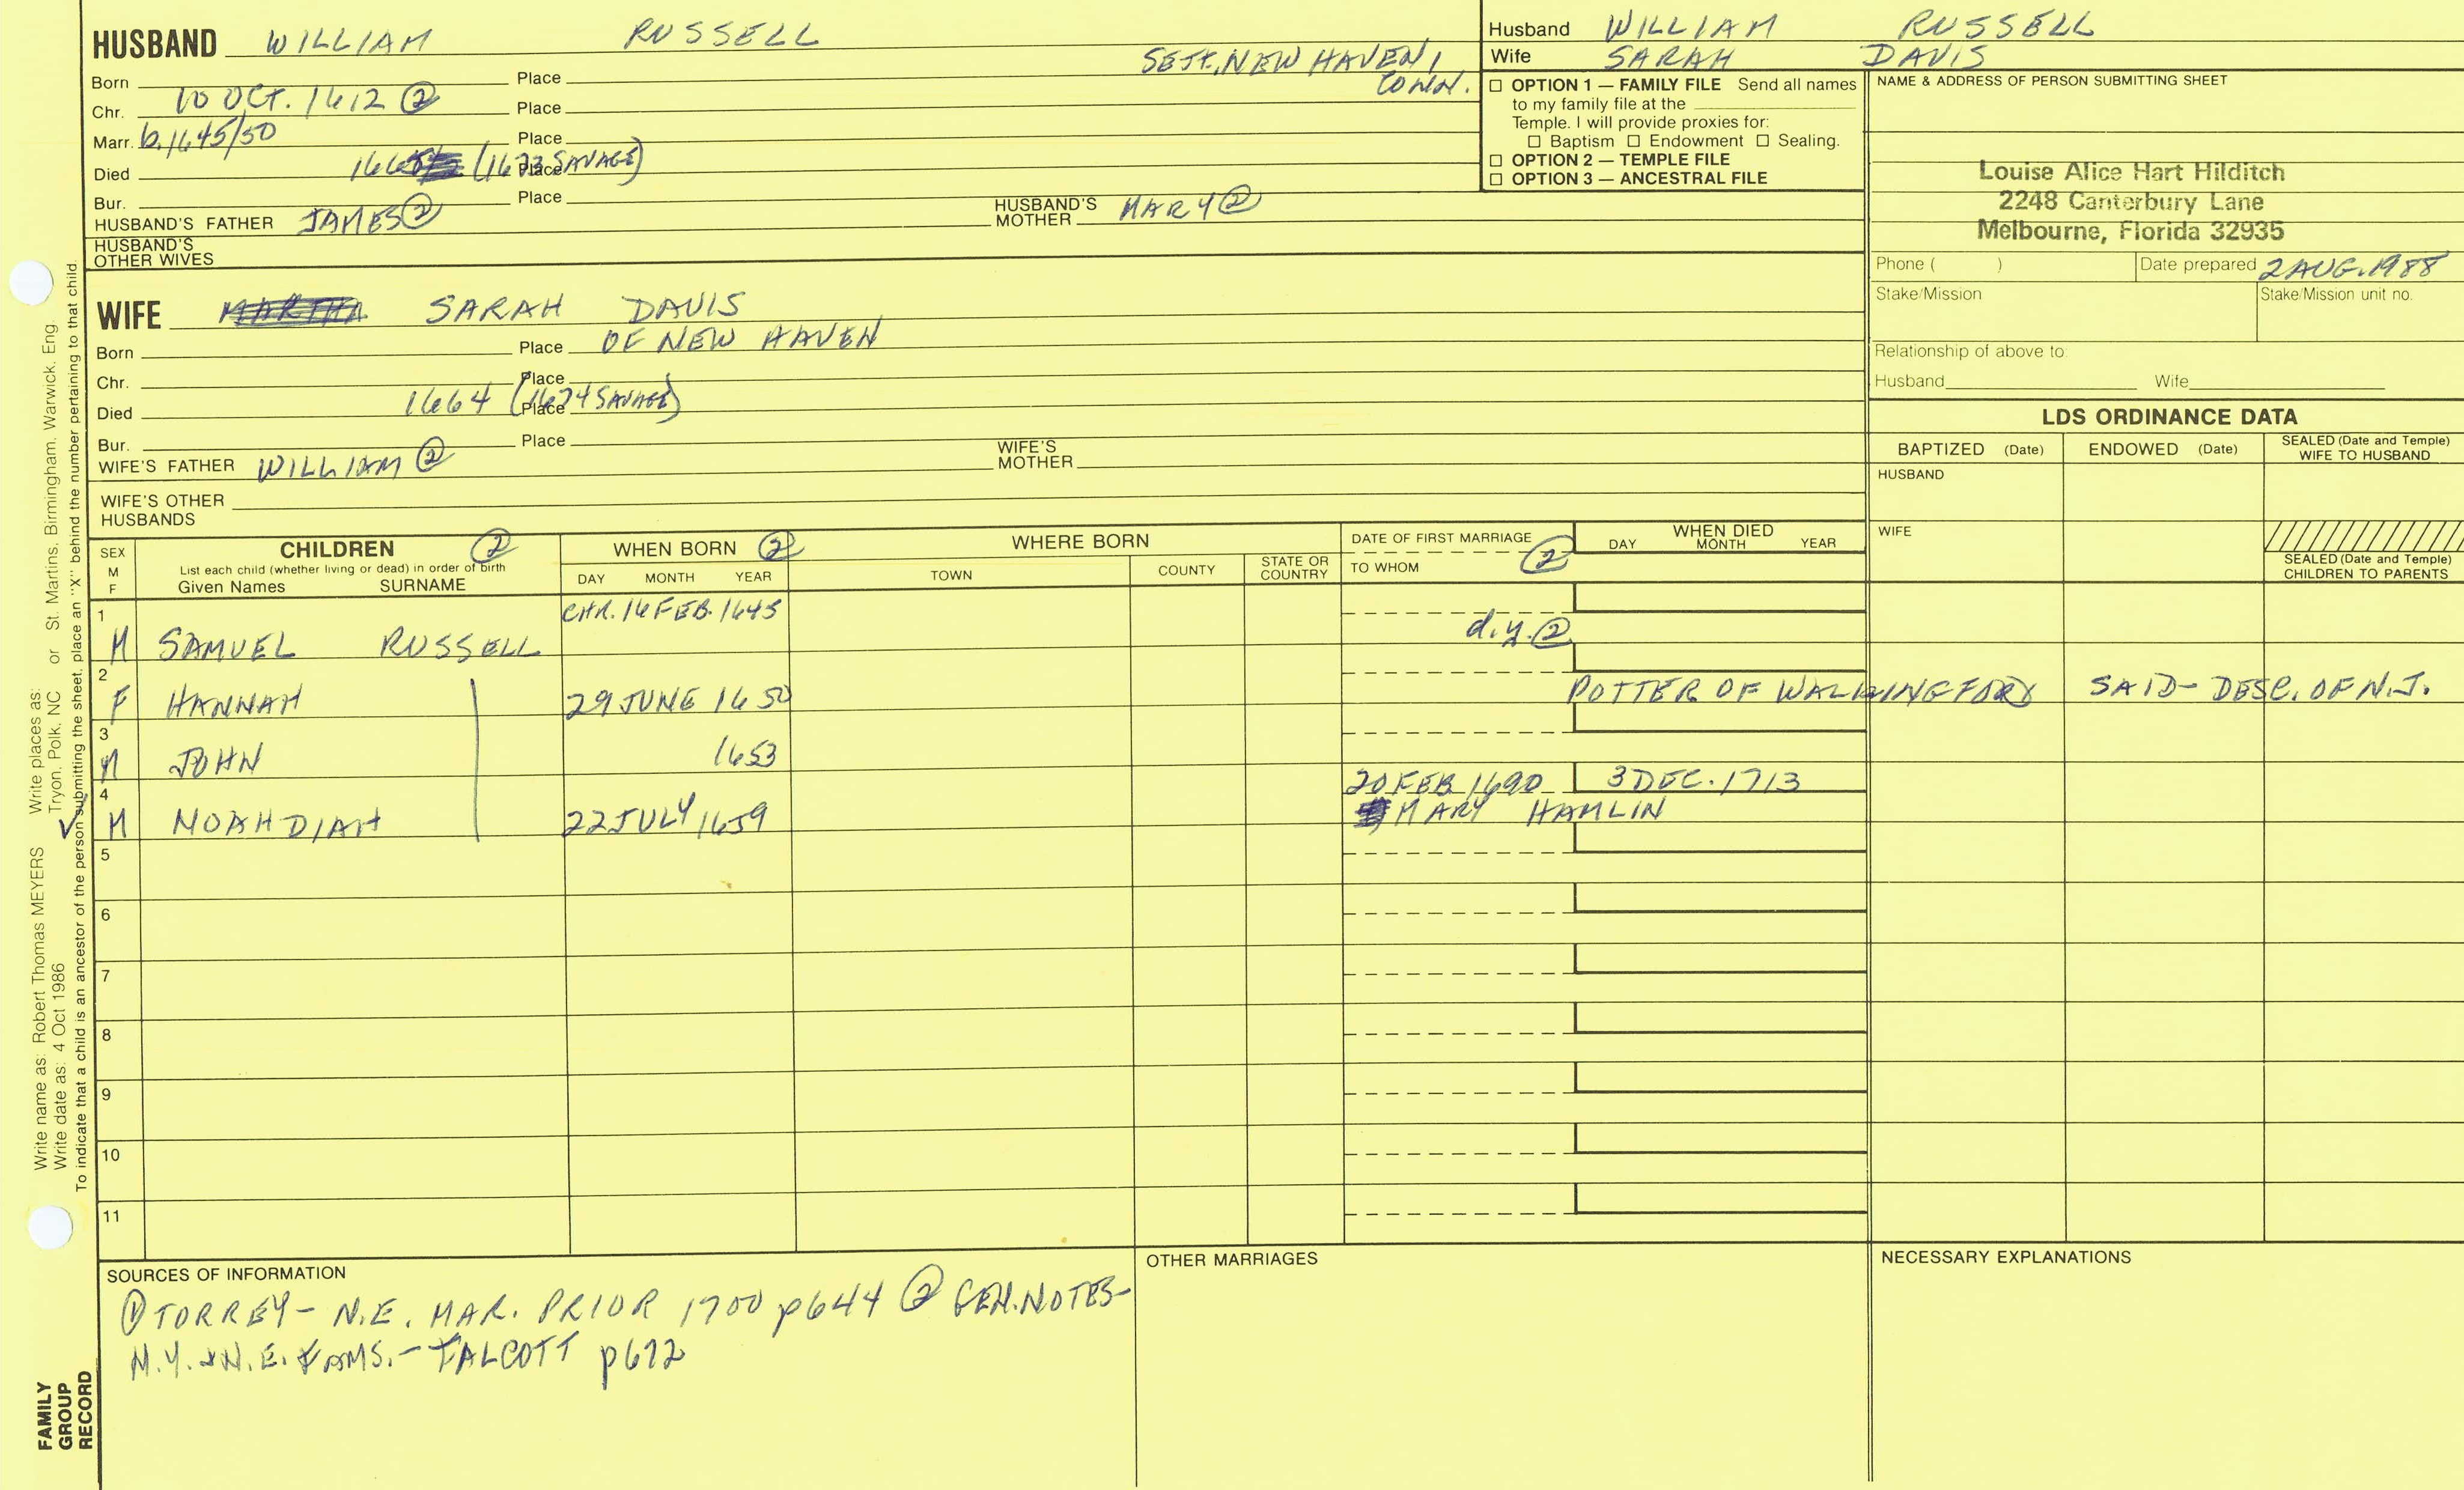 HUSBAND WILLIAM RUSSELL
SETT. NEW HAVEN,
CONN.
Born Place
Chr. 10 OCT. 1612 ② Place
Marr. b. 1645/50 Place
Died 166 (1673 SAVAGE) Place
Bur. Place
HUSBAND'S FATHER JAMES ② HUSBAND'S MOTHER MARY ②
HUSBAND'S
OTHER WIVES
WIFE MARTHA SARAH DAVIS
OF NEW HAVEN
Born Place
Chr. Place
Died 1664 (1674 SAVAGE) Place
Bur. Place
WIFE'S FATHER WILLIAM ② WIFE'S MOTHER
WIFE'S OTHER
HUSBANDS
Husband WILLIAM RUSSELL
Wife SARAH DAVIS
☐ OPTION 1 — FAMILY FILE Send all names
to my family file at the
Temple. I will provide proxies for:
☐ Baptism ☐ Endowment ☐ Sealing.
☐ OPTION 2 — TEMPLE FILE
☐ OPTION 3 — ANCESTRAL FILE
NAME & ADDRESS OF PERSON SUBMITTING SHEET
Louise Alice Hart Hilditch
2248 Canterbury Lane
Melbourne, Florida 32935
Phone ( ) Date prepared 2 AUG. 1988
Stake/Mission Stake/Mission unit no.
Relationship of above to:
Husband Wife
LDS ORDINANCE DATA
BAPTIZED (Date) ENDOWED (Date) SEALED (Date and Temple)
WIFE TO HUSBAND
HUSBAND
WIFE
SEALED (Date and Temple)
CHILDREN TO PARENTS
SEX
M
F
CHILDREN ②
List each child (whether living or dead) in order of birth
Given Names SURNAME
WHEN BORN ②
DAY MONTH YEAR
WHERE BORN
TOWN COUNTY STATE OR COUNTRY
DATE OF FIRST MARRIAGE
TO WHOM ②
WHEN DIED
DAY MONTH YEAR
1 CHR. 16 FEB. 1645
M SAMUEL RUSSELL d.y. ②
2
F HANNAH 29 JUNE 1650 POTTER OF WALLINGFORD SAID - DESC. OF N.J.
3
M JOHN 1653
4 20 FEB 1690 3 DEC. 1713
✓ M NOAHDIAH 22 JULY 1659 MARY HAMLIN
5
6
7
8
9
10
11
SOURCES OF INFORMATION
① TORREY - N.E. MAR. PRIOR 1700 p644 ② GEN. NOTES-
N.Y. & N.E. FAMS. - TALCOTT p672
OTHER MARRIAGES
NECESSARY EXPLANATIONS
Write name as: Robert Thomas MEYERS Write places as:
Write date as: 4 Oct 1986 Tryon, Polk, NC or St. Martins, Birmingham, Warwick, Eng.
To indicate that a child is an ancestor of the person submitting the sheet, place an "X" behind the number pertaining to that child.
FAMILY
GROUP
RECORD